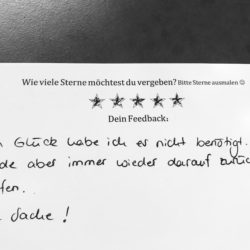 Wie viele Sterne möchtest du vergeben? Bitte Sterne ausmalen ☺
Dein Feedback:
Glück habe ich es nicht benötigt.
de aber immer wieder darauf zurück
fen.
Sache!